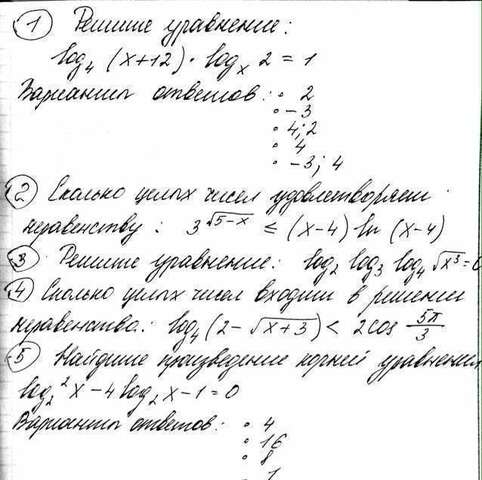 1 Решите уравнение:
log₄ (x+12) · logₓ 2 = 1
Варианты ответов: • 2
• -3
• 4; 2
• 4
• -3; 4
2 Сколько целых чисел удовлетворяет
неравенству: 3^√(5-x) ≤ (x-4) ln (x-4)
3 Решите уравнение: log₂ log₃ log₄ √x³ = 0
4 Сколько целых чисел входит в решение
неравенства: log₄ (2 - √(x+3)) < 2cos 5π/3
5 Найдите произведение корней уравнения
log₂² x - 4 log₂ x - 1 = 0
Варианты ответов: • 4
• 16
• 8
• 1